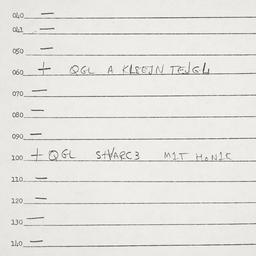 040 —
041 —
050 —
060 + QGL A KLEEJN TEJGL
070 —
080 —
090 —
100 + QGL SHVARC3 MIT HONIC
110 —
120 —
130 —
140 —